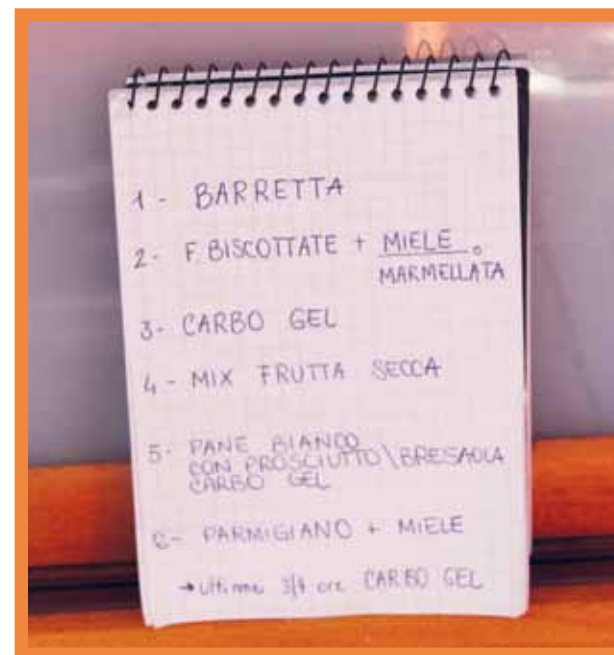 1 - BARRETTA
2 - F. BISCOTTATE + MIELE o
MARMELLATA
3 - CARBO GEL
4 - MIX FRUTTA SECCA
5 - PANE BIANCO
CON PROSCIUTTO\BRESAOLA
CARBO GEL
6 - PARMIGIANO + MIELE
→ ultime 3/4 ore CARBO GEL